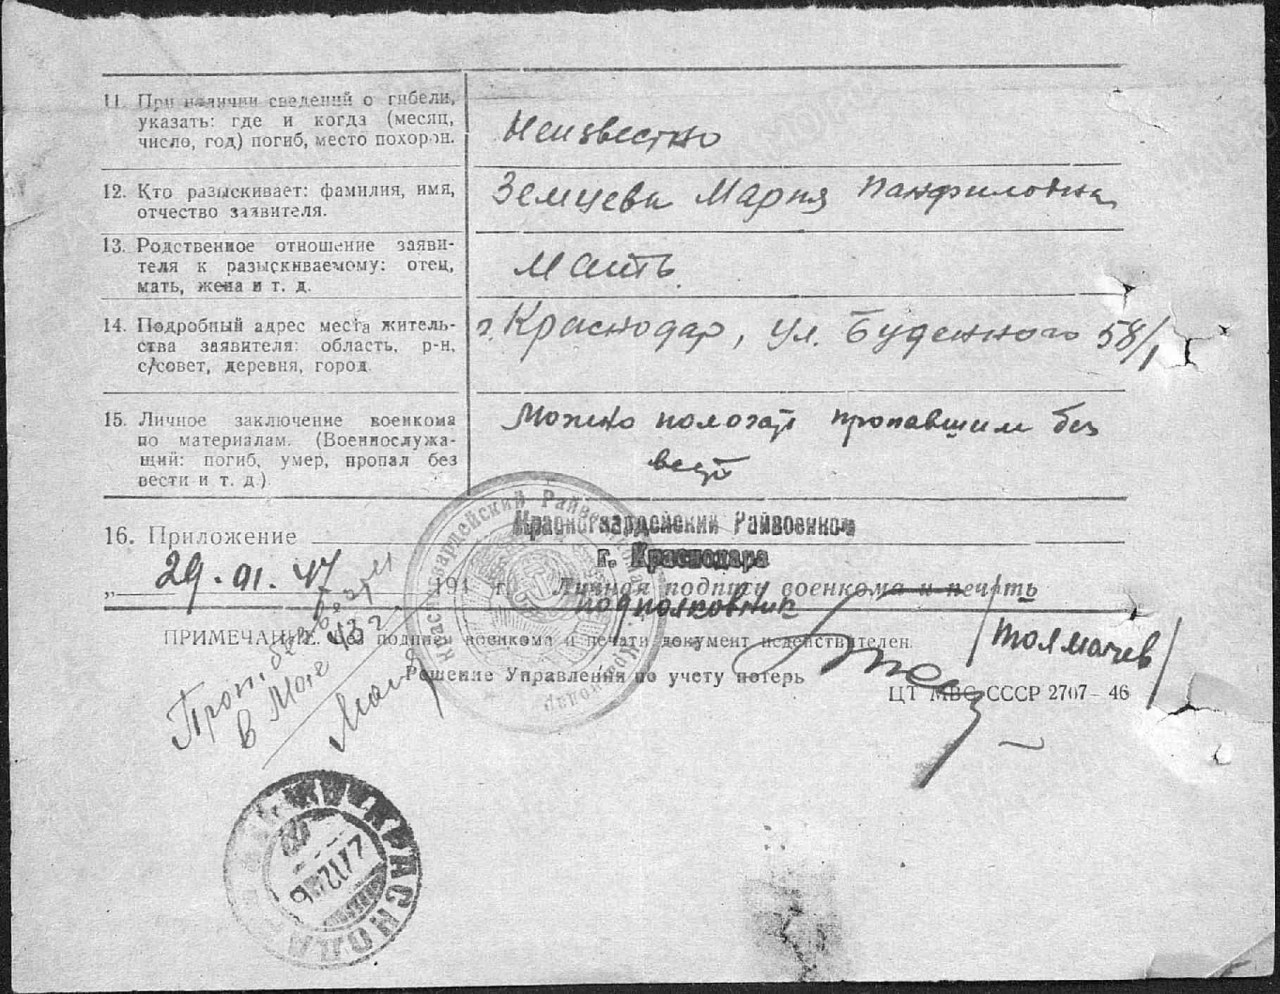 11. При наличии сведений о гибели,
указать: где и когда (месяц,
число, год) погиб, место похорон.
Неизвестно
12. Кто разыскивает: фамилия, имя,
отчество заявителя.
Земцева Мария Панфиловна
13. Родственное отношение заяви-
теля к разыскиваемому: отец,
мать, жена и т. д.
Мать
14. Подробный адрес места житель-
ства заявителя: область, р-н,
с/совет, деревня, город
г. Краснодар, ул. Буденного 58/1
15. Личное заключение военкома
по материалам. (Военнослужа-
щий: погиб, умер, пропал без
вести и т. д.)
Можно полагат пропавшим без
вести
16. Приложение
Красногвардейский Райвоенком
г. Краснодара
„ 29.01.47 194 г. Личная подпись военкома и печать
подполковник
/Толмачев/
ПРИМЕЧАНИЕ. Без подписи военкома и печати документ недействителен.
Решение Управления по учету потерь
ЦТ МВС СССР 2707-46
Проп. без вести
в мае 43 г.
Красногвардейский Райвоенкомат
Краснодар
КРАСНОДАР